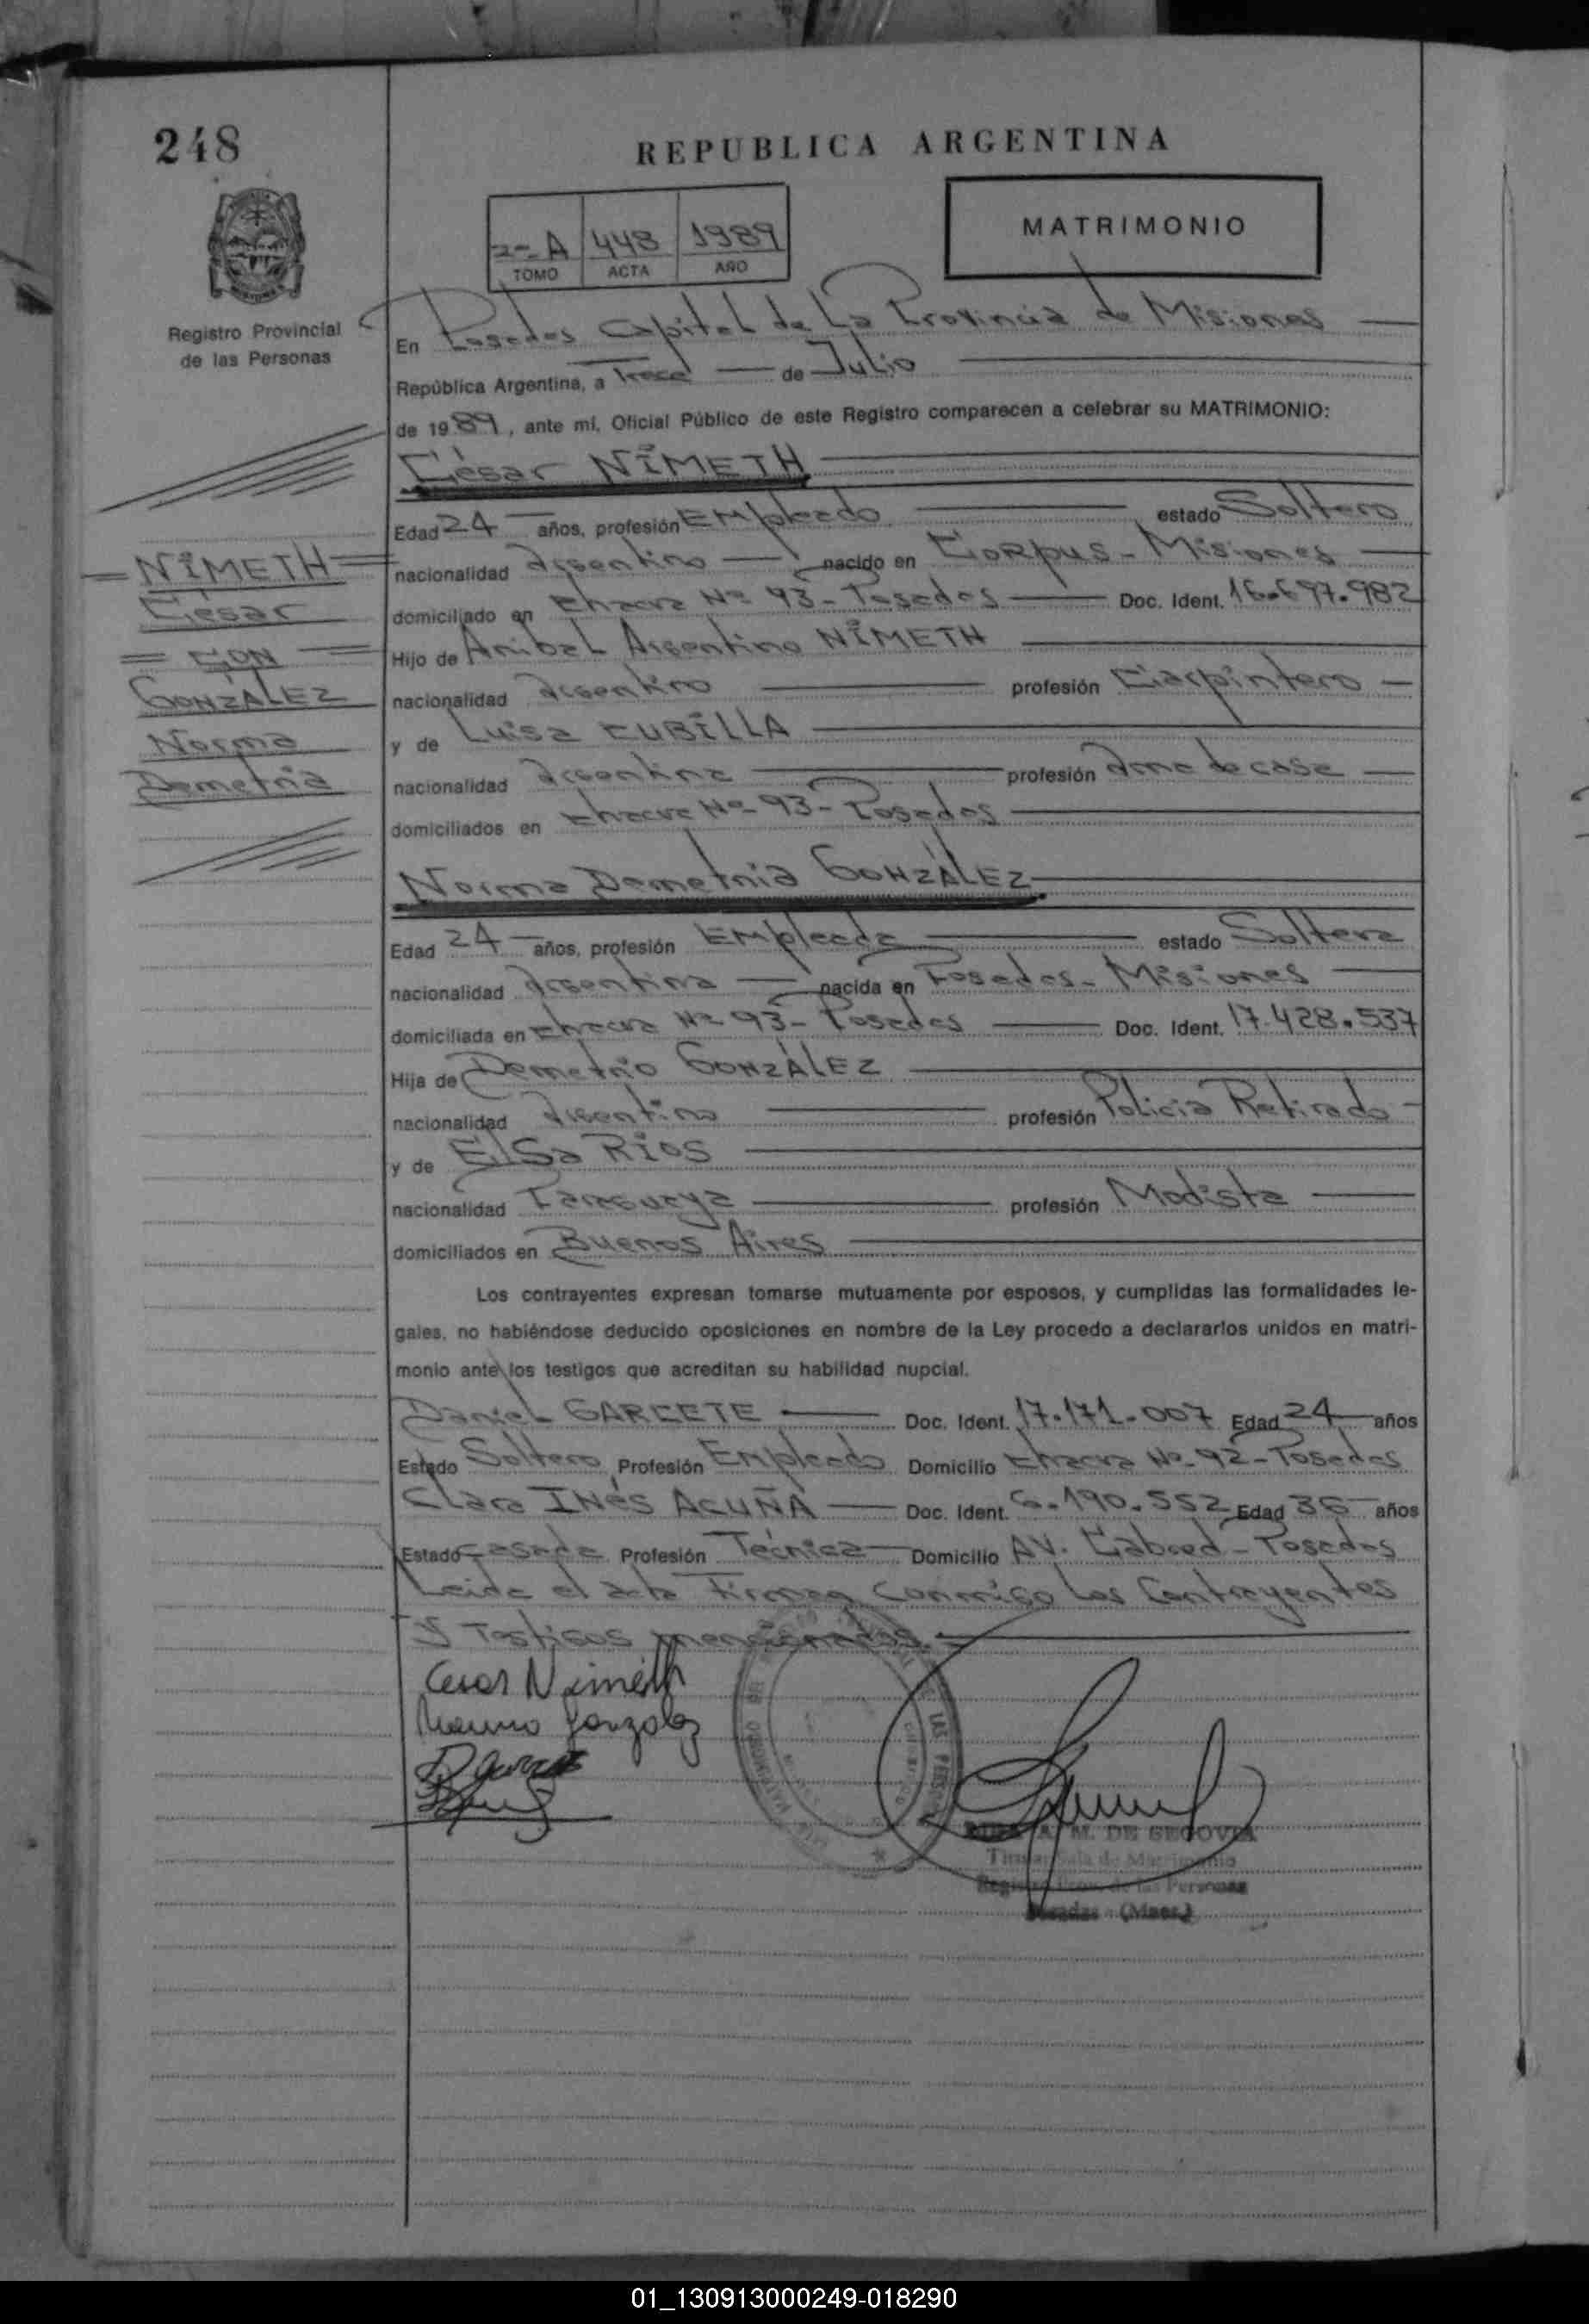 248
REPUBLICA ARGENTINA
2º-A 448 1989
TOMO ACTA AÑO
MATRIMONIO
Registro Provincial
de las Personas
En Posadas Capital de La Provincia de Misiones
República Argentina, a Trece de Julio
de 1989, ante mí, Oficial Público de este Registro comparecen a celebrar su MATRIMONIO:
César NÍMETH
Edad 24 años, profesión Empleado estado Soltero
nacionalidad argentino nacido en Corpus - Misiones
domiciliado en chacra Nº 93 - Posadas Doc. Ident. 16.697.982
Hijo de Anibal Argentino NÍMETH
nacionalidad argentino profesión Carpintero
y de Luisa CUBILLA
nacionalidad argentina profesión ama de casa
domiciliados en chacra Nº 93 - Posadas
NÍMETH
César
CON
GONZÁLEZ
Norma
Demetria
Norma Demetria GONZÁLEZ
Edad 24 años, profesión Empleada estado Soltera
nacionalidad argentina nacida en Posadas - Misiones
domiciliada en chacra Nº 93 - Posadas Doc. Ident. 17.428.537
Hija de Demetrio GONZÁLEZ
nacionalidad argentino profesión Policia Retirado
y de Elsa RIOS
nacionalidad Paraguaya profesión Modista
domiciliados en Buenos Aires
Los contrayentes expresan tomarse mutuamente por esposos, y cumplidas las formalidades le-
gales, no habiéndose deducido oposiciones en nombre de la Ley procedo a declararlos unidos en matri-
monio ante los testigos que acreditan su habilidad nupcial.
Daniel GARCETE Doc. Ident. 17.171.007 Edad 24 años
Estado Soltero Profesión Empleado Domicilio chacra Nº 92 - Posadas
Clara Inés ACUÑA Doc. Ident. 6.190.552 Edad 36 años
Estado casada Profesión Técnica Domicilio AV. Cabred - Posadas
Leida el acta Firman conmigo los Contrayentes
y Testigos mencionados.
Cesar Nimeth
Norma Gonzalez
A. M. DE SEGOVIA
Titular Sala de Matrimonio
Registro Prov. de las Personas
Posadas - (Mnes.)
01_130913000249-018290